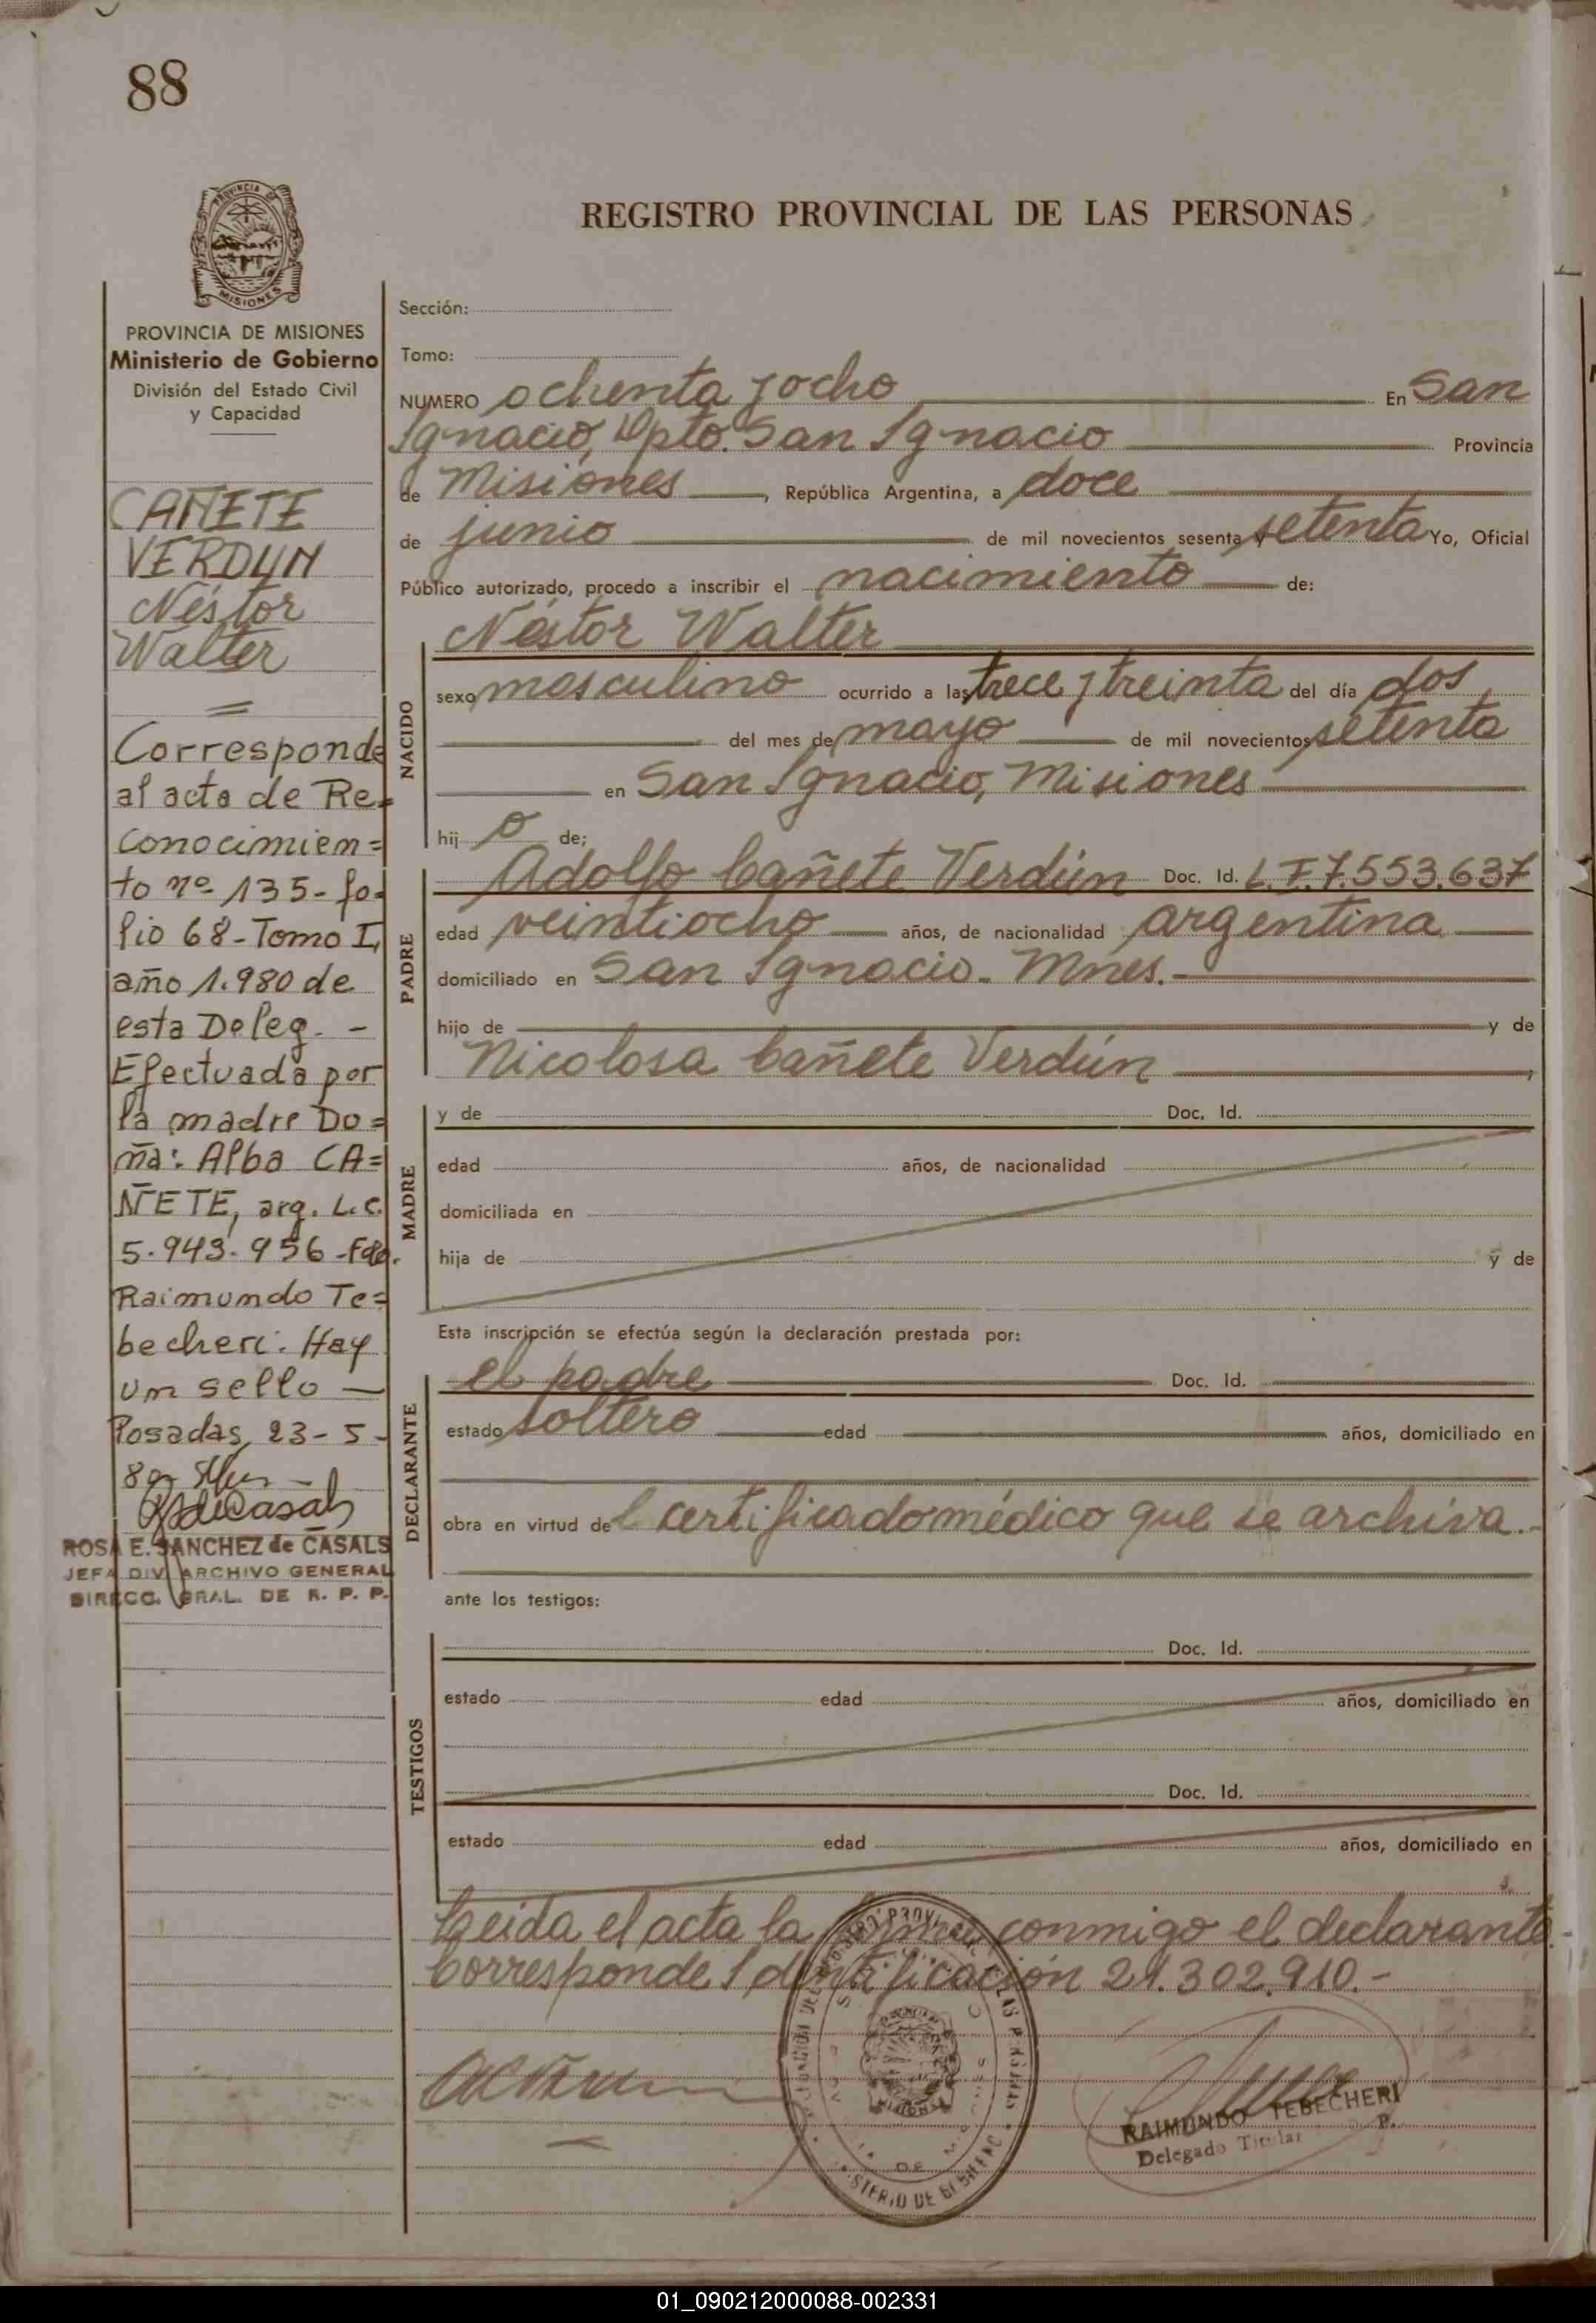 88
PROVINCIA DE
MISIONES
REGISTRO PROVINCIAL DE LAS PERSONAS
PROVINCIA DE MISIONES
Ministerio de Gobierno
División del Estado Civil
y Capacidad
CAÑETE
VERDUN
Néstor
Walter
Corresponde
al acta de Re-
conocimien=
to nº 135- fo-
lio 68-Tomo I,
año 1.980 de
esta Deleg. -
Efectuada por
la madre Do=
ña: Alba CA=
ÑETE, arg. L.C.
5.943.956-Fdo.
Raimundo Te=
becheri. Hay
un sello —
Posadas, 23-5-
80-
ROSA E. SANCHEZ de CASALS
JEFA DIV. ARCHIVO GENERAL
DIRECC. GRAL. DE R. P. P.
Sección:
Tomo:
NUMERO ochenta y ocho En San
Ignacio, Dpto. San Ignacio Provincia
de Misiones, República Argentina, a doce
de junio de mil novecientos sesenta y setenta Yo, Oficial
Público autorizado, procedo a inscribir el nacimiento de:
NACIDO
Néstor Walter
sexo masculino ocurrido a las trece y treinta del día dos
del mes de mayo de mil novecientos setenta
en San Ignacio, Misiones
hij o de;
PADRE
Adolfo Cañete Verdún Doc. Id. L.E. 7.553.637
edad veintiocho años, de nacionalidad argentina
domiciliado en San Ignacio- Mnes.
hijo de y de
Nicolosa Cañete Verdún
MADRE
y de Doc. Id.
edad años, de nacionalidad
domiciliada en
hija de y de
Esta inscripción se efectúa según la declaración prestada por:
DECLARANTE
el padre Doc. Id.
estado soltero edad años, domiciliado en
obra en virtud del certificado médico que se archiva.-
ante los testigos:
TESTIGOS
Doc. Id.
estado edad años, domiciliado en
Doc. Id.
estado edad años, domiciliado en
Leida el acta la firma conmigo el declarante.
Corresponde Identificación 21.302.910.-
RAIMUNDO TEBECHERI
Delegado Titular R. P.
01_090212000088-002331